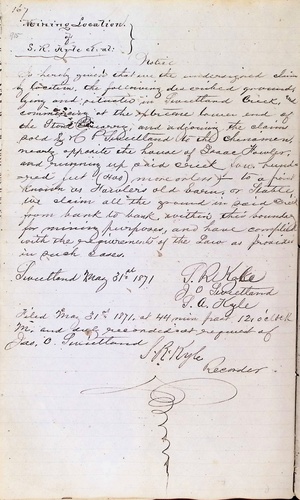 167
Mining Location.
of
S. R. Kyle et. al.
Notice
Is hereby given that we the undersigned claim
by location, the following described grounds
lying and situated in Sweetland Creek,
commencing at the extreme lower end of
the and adjoining the claims
sold by R P Sweetland to the Chinamen
nearly opposite the house of Isaac Hawler,
and running up said creek four hund-
red feet (400) more or less to a point
known as Hawlers old Cabin, or Stable
we claim all the ground in said Creek
from bank to bank within these bounds
for mining purposes, and have complied
with the requirements of the Law as provided
in such cases.
Sweetland May 31st 1871
S. R. Kyle
J O Sweetland
T. A. Kyle
Filed May 31st 1871, at 44 min past 12 oclock
M. and duly recorded at request of
Jas. O. Sweetland
S. R. Kyle
Recorder